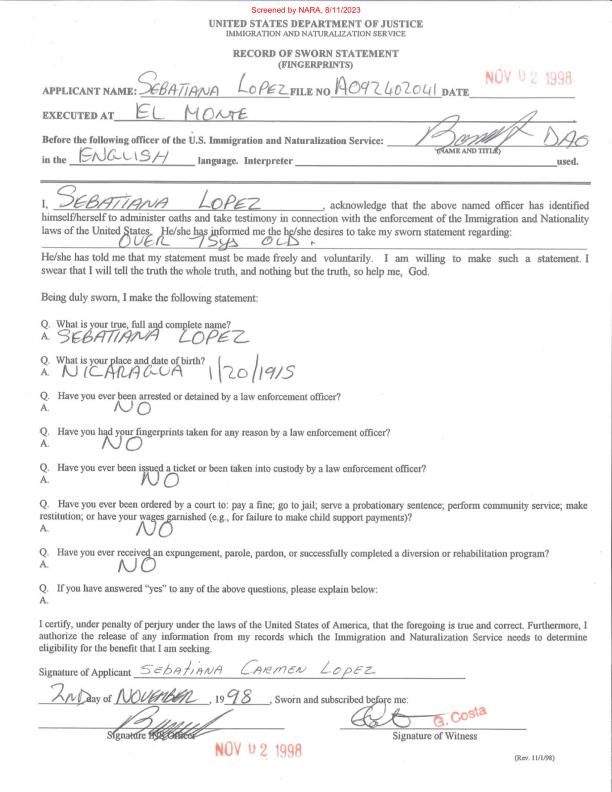 Screened by NARA, 8/11/2023
UNITED STATES DEPARTMENT OF JUSTICE
IMMIGRATION AND NATURALIZATION SERVICE
RECORD OF SWORN STATEMENT
(FINGERPRINTS)
APPLICANT NAME: SEBATIANA LOPEZ FILE NO A092402041 DATE NOV 02 1998
EXECUTED AT EL MONTE
Before the following officer of the U.S. Immigration and Naturalization Service: DAO
(NAME AND TITLE)
in the ENGLISH language. Interpreter used.
I, SEBATIANA LOPEZ, acknowledge that the above named officer has identified
himself/herself to administer oaths and take testimony in connection with the enforcement of the Immigration and Nationality
laws of the United States. He/she has informed me the he/she desires to take my sworn statement regarding:
OVER 75ys OLD.
He/she has told me that my statement must be made freely and voluntarily. I am willing to make such a statement. I
swear that I will tell the truth the whole truth, and nothing but the truth, so help me, God.
Being duly sworn, I make the following statement:
Q. What is your true, full and complete name?
A. SEBATIANA LOPEZ
Q. What is your place and date of birth?
A. NICARAGUA 1/20/1915
Q. Have you ever been arrested or detained by a law enforcement officer?
A. NO
Q. Have you had your fingerprints taken for any reason by a law enforcement officer?
A. NO
Q. Have you ever been issued a ticket or been taken into custody by a law enforcement officer?
A. NO
Q. Have you ever been ordered by a court to: pay a fine; go to jail; serve a probationary sentence; perform community service; make
restitution; or have your wages garnished (e.g., for failure to make child support payments)?
A. NO
Q. Have you ever received an expungement, parole, pardon, or successfully completed a diversion or rehabilitation program?
A. NO
Q. If you have answered "yes" to any of the above questions, please explain below:
A.
I certify, under penalty of perjury under the laws of the United States of America, that the foregoing is true and correct. Furthermore, I
authorize the release of any information from my records which the Immigration and Naturalization Service needs to determine
eligibility for the benefit that I am seeking.
Signature of Applicant SEBATIANA CARMEN LOPEZ
2ND day of NOVEMBER, 1998, Sworn and subscribed before me:
G. Costa
Signature INS Officer Signature of Witness
NOV 02 1998
(Rev. 11/1/98)